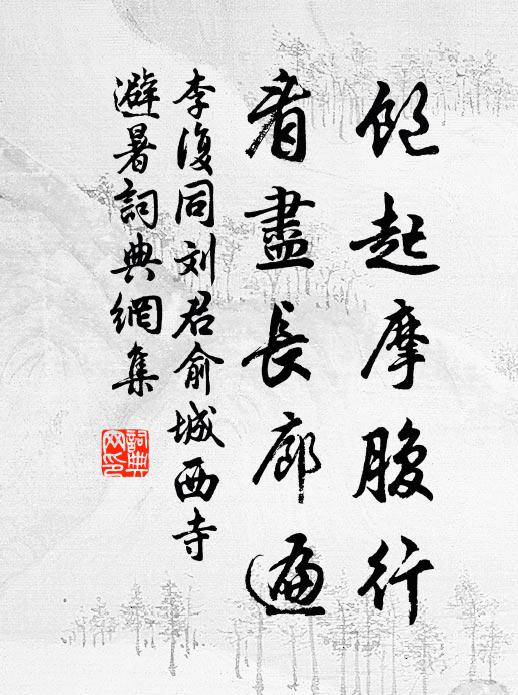 飽起摩腹行
看盡長廊遍
李復同刘君俞城西寺
避暑詞典網集
詞典網印